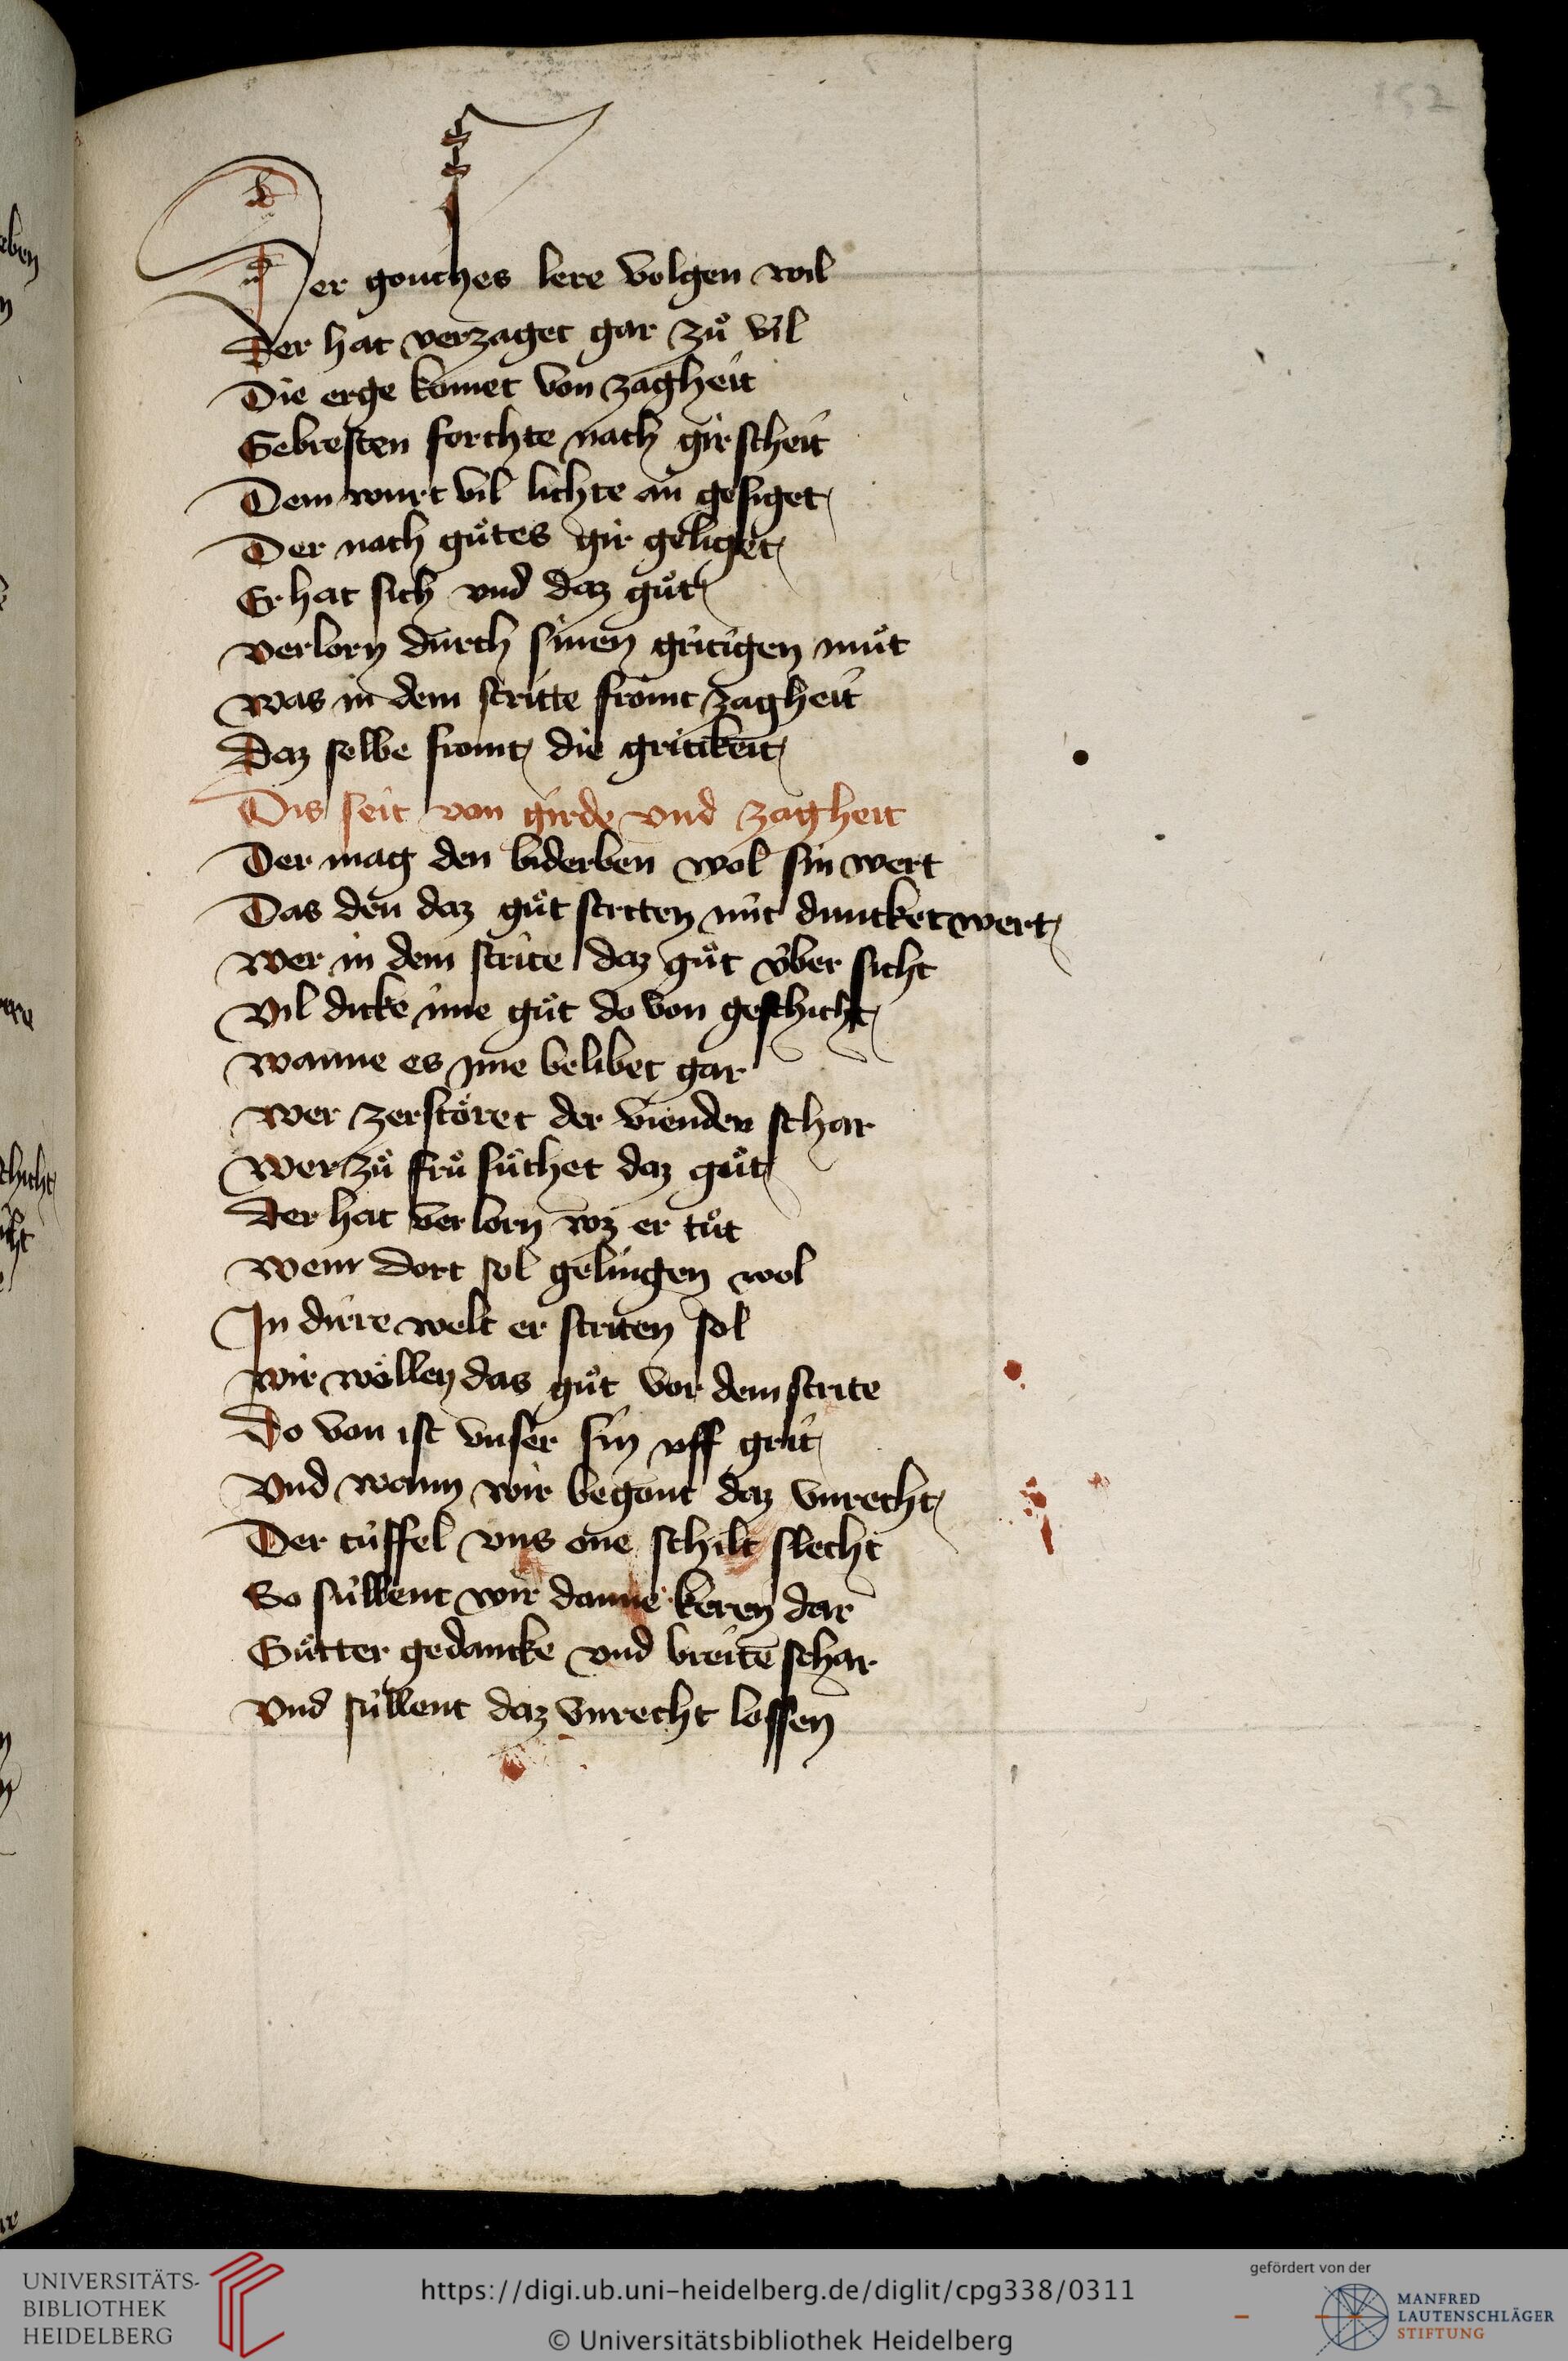 152
Der gouches lere volgen wil
Der hat verzaget gar zuͦ vil
Die erge komet von zagheit
Gebresten forchte nach girscheit
Dem wurt vil lichte an gesiget
Der nach guͦtes gir geliget
Er hat sich vnd daz guͦt
verlorn durch sinen gritigen muͦt
was in dem stritte fromt zagheit
Daz selbe fromt die gritikeit
Dis seit von girde vnd zagheit
Der mag den biderben wol sin wert
Das den daz guͦt stritten nit duncket wert
wer in dem strite daz guͦt v́ber sicht
vil dicke ime guͦt do von geschicht
wanne es jme belibet gar
wer zerstoͤret der vienden schar
wer zuͦ fruͦ suͦchet daz guͦt
der hat verlorn wz er tuͦt
wem dort sol gelingen wol
Jn dirre welt er striten sol
wir woͤllen das guͦt vor dem strite
do von ist vnser sin vff grit
vnd wann wir begont daz vnrecht
Der túffel vns one schilt slecht
So súllent wir danne keren dar
Guͦtter gedancke vnd breite schar
vnd súllent daz vnrecht lossen
UNIVERSITÄTS-
BIBLIOTHEK
HEIDELBERG
https://digi.ub.uni-heidelberg.de/diglit/cpg338/0311
© Universitätsbibliothek Heidelberg
gefördert von der
MANFRED
LAUTENSCHLÄGER
STIFTUNG